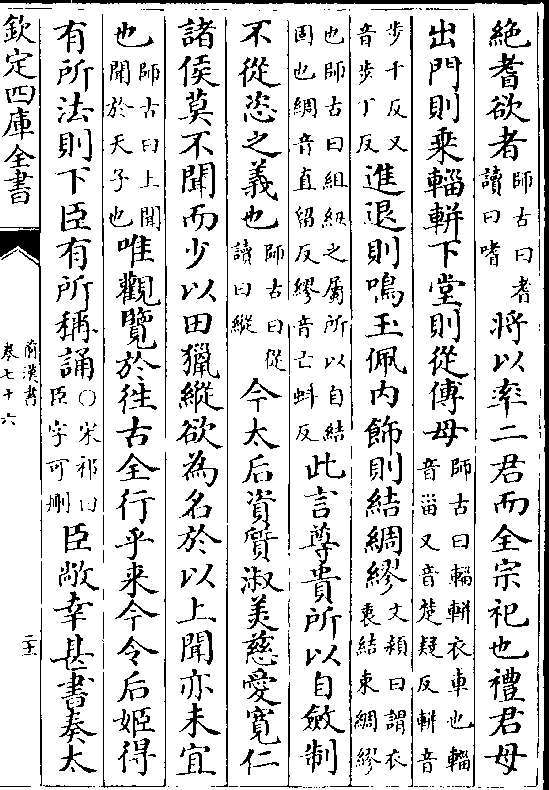 絶耆欲者師古曰耆讀曰嗜將以率二君而全宗祀也禮君母
出門則乗輜軿下堂則從傅母師古曰輜軿衣車也輜音甾又音楚疑反軿音
步千反又音步丁反進退則鳴玉佩内飾則結綢繆文穎曰謂衣裏結束綢繆
也師古曰組紐之屬所以自結固也綢音直留反繆音亡蚪反此言尊貴所以自斂制
不從恣之義也師古曰從讀曰縱今太后資質淑美慈愛寛仁
諸侯莫不聞而少以田獵縱欲為名於以上聞亦未宜
也師古曰上聞聞於天子也唯觀覽於往古全行乎来今令后姬得
有所法則下臣有所稱誦○宋祁曰臣字可刪臣敞幸甚書奏太
欽定四庫全書
前漢書
卷七十六